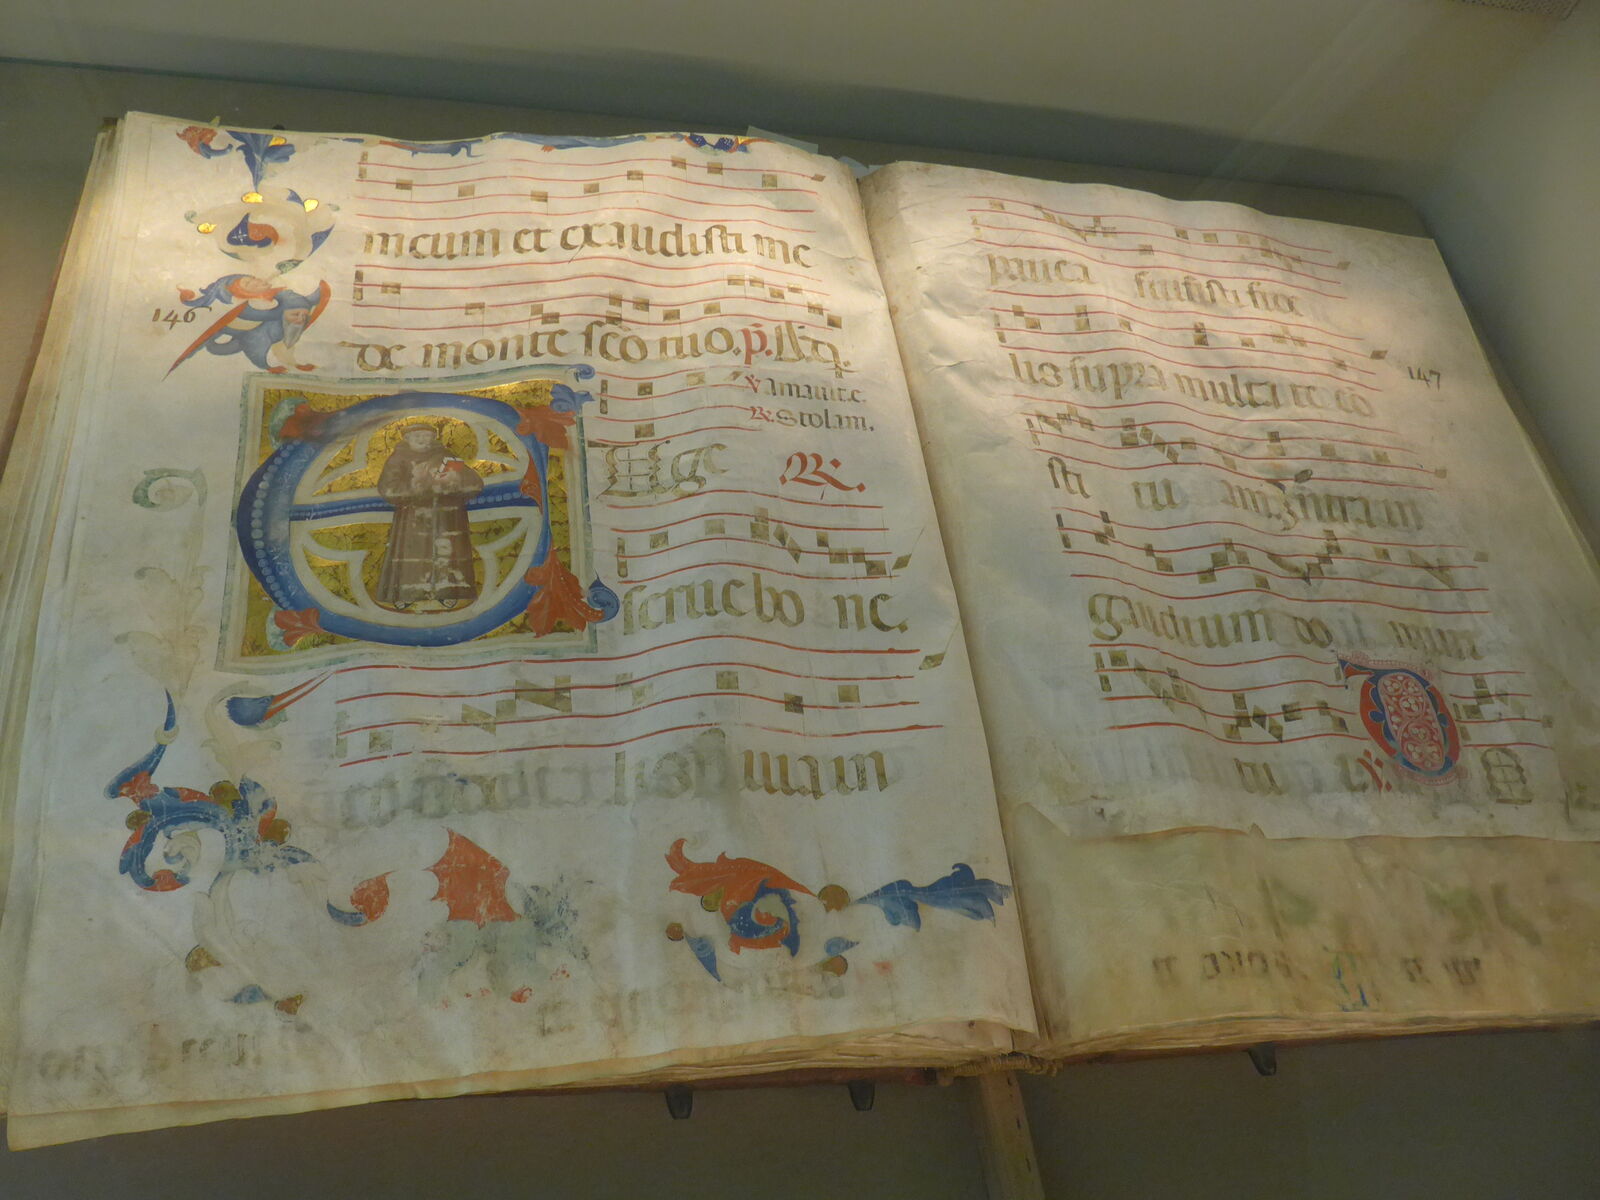 meum et exaudisti me
146
de monte sco tuo. p̄.
℣ Amauit. e.
℟. Stolam.
Uge ℟.
serue bo ne.
lis quia in
pauca fuisti fide
147
lis supra multa te co
sti tu am. Intra in
gaudium do mini
tu i. ℣. D